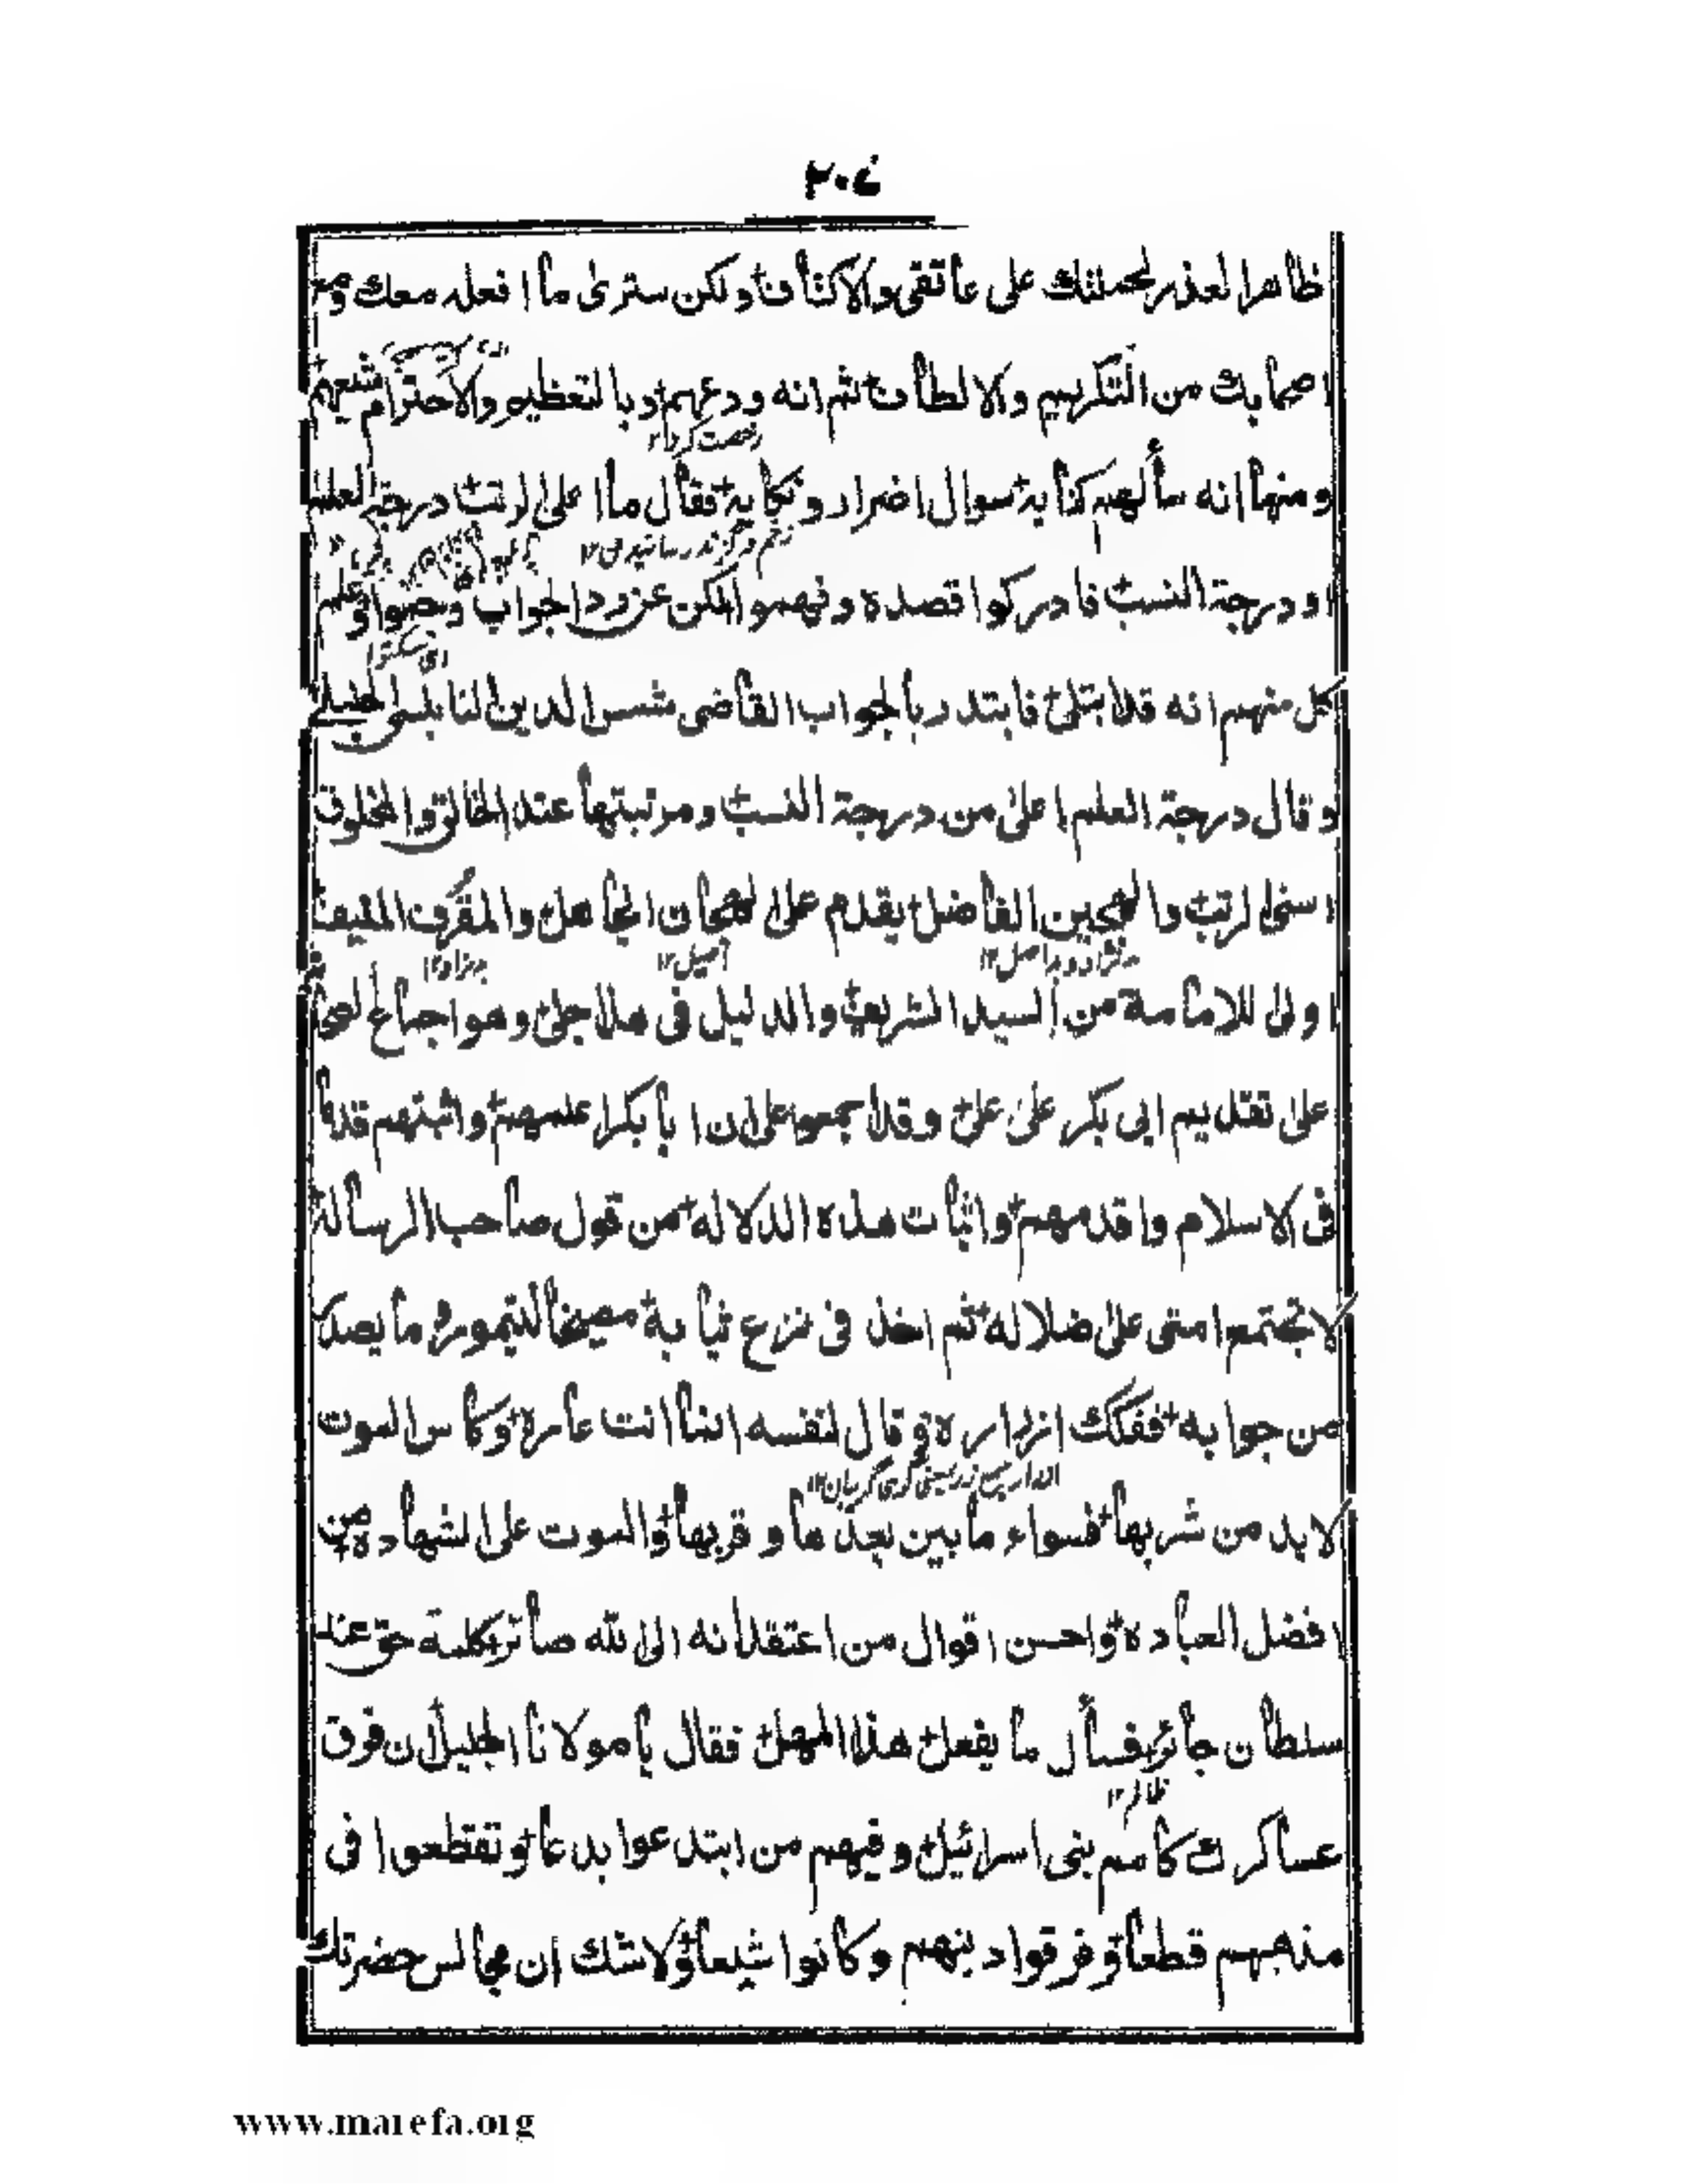 ٢٠٤
ظاهر العذر لحملتك على عاتقي والاكتاف ولكن سترى ما افعله معك ومع
اصحابك من التكريم والالطاف ثم انه ودعهم وبالتعظيم والاحترام شيعهم
رخصت کرد ١٢
ومنها انه سألهم كناية سوال اضرار ونكاية فقال ما اعلى الرتب درجة العلم
زخم و گزند رسانیدن ١٢
او درجة النسب فادركوا قصده وفهموا لكن عن رد الجواب وجموا وعلم
ای سکتوا
كل منهم انه قد ابتلى فابتدر بالجواب القاضى شمس الدين النابلسى الحنبلى
وقال درجة العلم اعلى من درجة النسب ومرتبتها عند الخالق والمخلوق
اسنى الرتب والهجين الفاضل يقدم على الهجان الجاهل والمقرف المنيف
اصیل ١٢
اولى للامامة من السيد الشريف والدليل فى هذا جلى وهو اجماع الصحابة
على تقديم ابى بكر على على وقد اجمعوا على ان ابا بكر اعلمهم واثبتهم قدما
فى الاسلام واقدمهم واثبات هذه الدلاله من قول صاحب الرسالة
لا تجتمع امتى على ضلاله ثم اخذ فى نزع ثيابه مصيخا لتيمور وما يصدر
من جوابه ففكك ازراره وقال لنفسه انما انت عاره وكأس الموت
لابد من شربها فسواء ما بين بعدها وقربها والموت على الشهاده من
افضل العباده واحسن اقوال من اعتقد انه الى الله صائر كلمة حق عند
سلطان جائر فسأل ما يفعل هذا المهل فقال يا مولانا الجليل ان فرق
ظالم ١٢
عساكرك كامم بنى اسرائيل وفيهم من ابتدعوا بدعا وتقطعوا فى
مذهبهم قطعا وفرقوا دينهم وكانوا شيعا ولا شك ان مجالس حضرتك
www.marefa.org